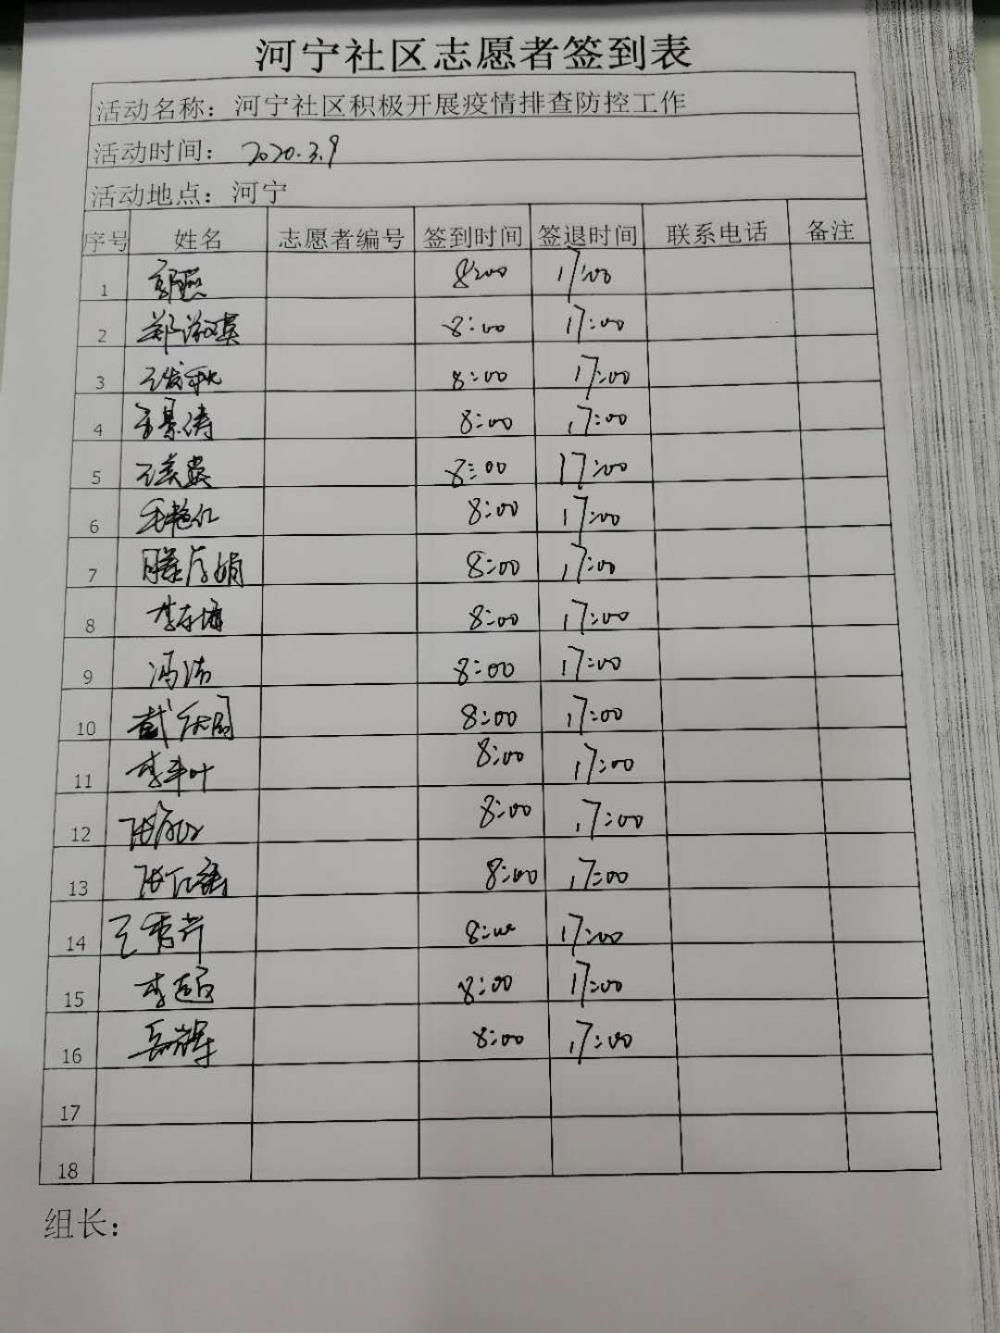 河宁社区志愿者签到表
活动名称：河宁社区积极开展疫情排查防控工作
活动时间：2020.3.9
活动地点：河宁
序号 姓名 志愿者编号 签到时间 签退时间 联系电话 备注
1 郭燕 8:00 17:00
2 郑淑琪 8:00 17:00
3 8:00 17:00
4 王景涛 8:00 17:00
5 王美 8:00 17:00
6 毛艳红 8:00 17:00
7 滕彦娟 8:00 17:00
8 李 8:00 17:00
9 冯涛 8:00 17:00
10 戴庆周 8:00 17:00
11 李平叶 8:00 17:00
12 张 8:00 17:00
13 张红 8:00 17:00
14 王秀芹 8:00 17:00
15 李 8:00 17:00
16 岳辉 8:00 17:00
17
18
组长：